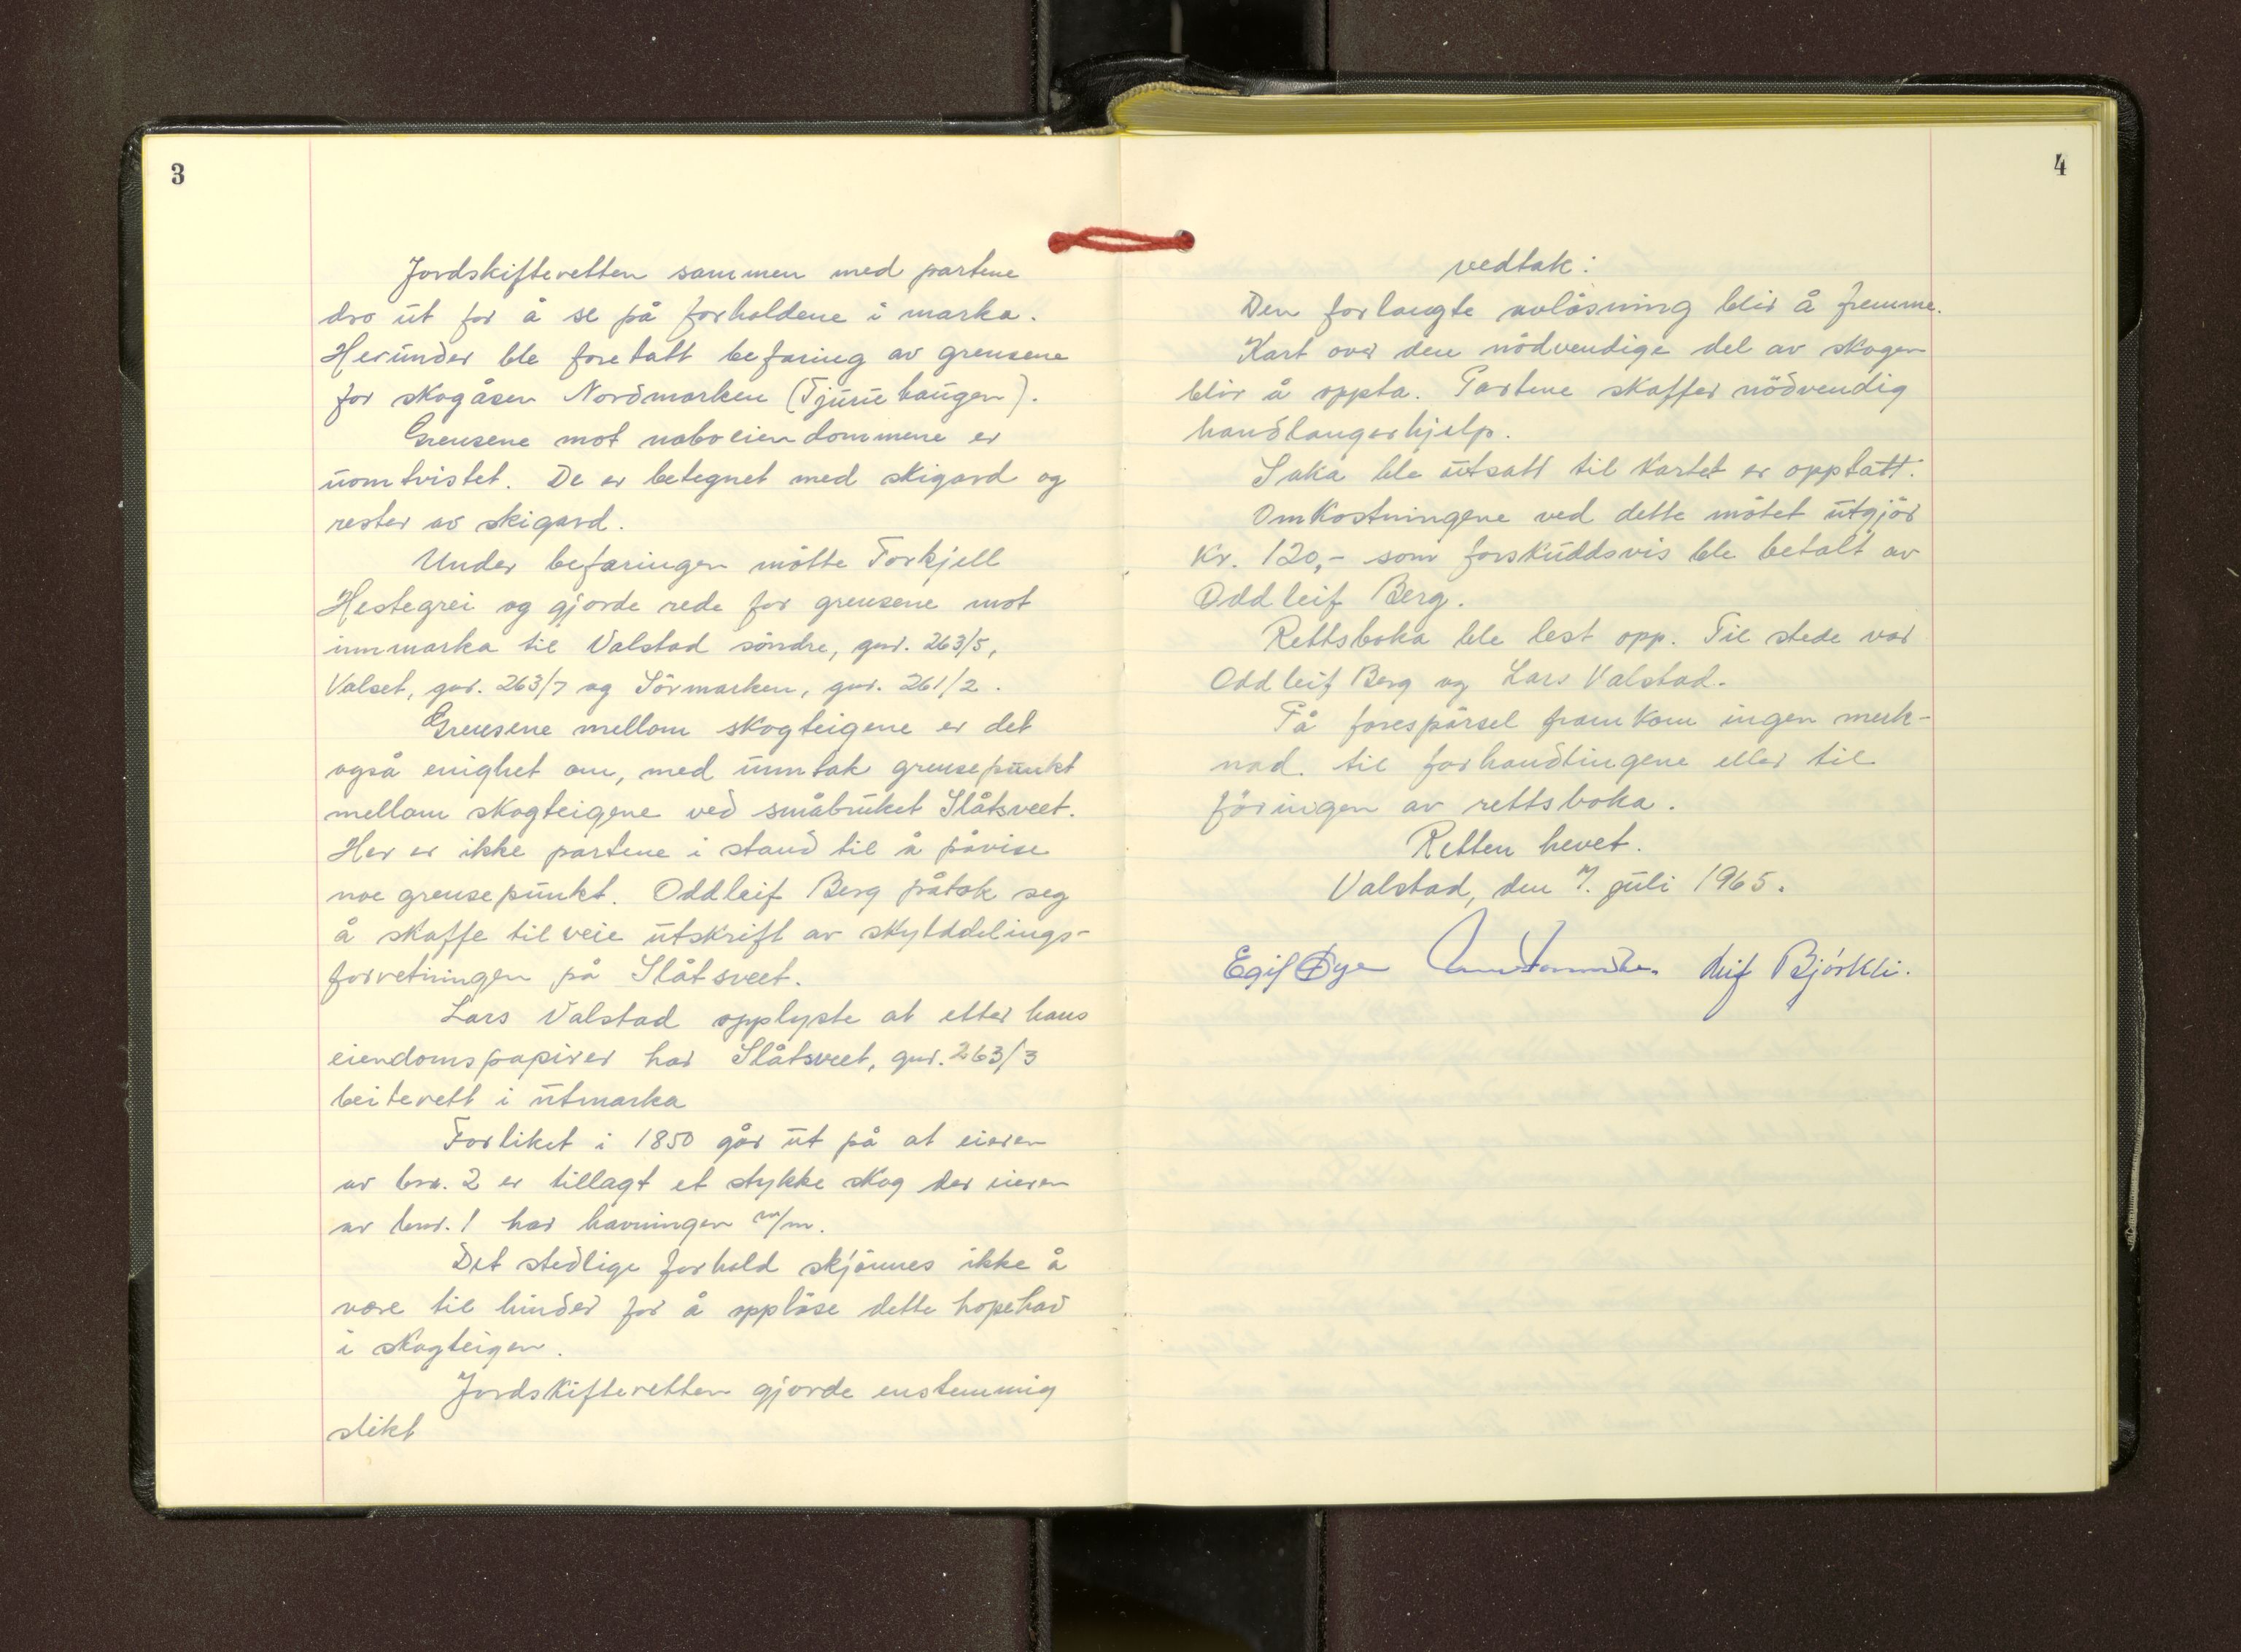 3
Jordskifteretten sammen med partene
dro ut for å se på forholdene i marka.
Herunder ble foretatt befaring av grensene
for skogåsen Nordmarken (Tjuruhaugen).
Grensene mot naboeiendommene er
uomtvistet. De er betegnet med skigard og
rester av skigard.
Under befaringen møtte Torkjell
Hestegrei og gjorde rede for grensene mot
innmarka til Valstad söndre, gnr. 263/5,
Valset, gnr. 263/7 og Sörmarken, gnr. 261/2.
Grensene mellom skogteigene er det
også enighet om, med unntak grensepunkt
mellom skogteigene ved småbruket Slåtsveet.
Her er ikke partene i stand til å påvise
noe grensepunkt. Oddleif Berg påtok seg
å skaffe tilveie utskrift av skylddelings-
forretningen på Slåtsveet.
Lars Valstad opplyste at etter hans
eiendomspapirer har Slåtsveet, gnr. 263/3
beiterett i utmarka
Forliket i 1850 går ut på at eieren
av bnr. 2 er tillagt et stykke skog der eieren
av bnr. 1 har havningen m/m.
Det stedlige forhold skjönnes ikke å
være til hinder for å opplöse dette hopehav
i skogteigen.
Jordskifteretten gjorde enstemmig
slikt
4
vedtak:
Den forlangte avlösning blir å fremme.
Kart over den nödvendige del av skogen
blir å oppta. Partene skaffer nödvendig
handlangerhjelp.
Saka ble utsatt til kartet er opptatt.
Omkostningene ved dette mötet utgjör
kr. 120,- som forskuddsvis ble betalt av
Oddleif Berg.
Rettsboka ble lest opp. Til stede var
Oddleif Berg og Lars Valstad.
På forespörsel framkom ingen merk-
nad. til forhandlingene eller til
föringen av rettsboka.
Retten hevet.
Valstad, den 7. juli 1965.
Egil Øyen Leif Björkli.